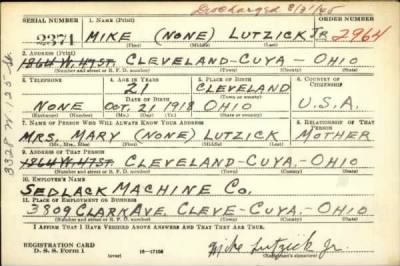 Discharged 8/31/45
SERIAL NUMBER 1. NAME (Print) ORDER NUMBER
2371 MIKE (NONE) LUTZICK JR 2964
(First) (Middle) (Last)
2. ADDRESS (Print)
1864 W. 47 ST. CLEVELAND-CUYA-OHIO
(Number and street or R. F. D. number) (Town) (County) (State)
3. TELEPHONE 4. AGE IN YEARS 5. PLACE OF BIRTH 6. COUNTRY OF CITIZENSHIP
21 CLEVELAND
DATE OF BIRTH (Town or county)
NONE OCT. 21 1918 OHIO U.S.A.
(Exchange) (Number) (Mo.) (Day) (Yr.) (State or country)
7. NAME OF PERSON WHO WILL ALWAYS KNOW YOUR ADDRESS 8. RELATIONSHIP OF THAT PERSON
MRS. MARY (NONE) LUTZICK MOTHER
(Mr., Mrs., Miss) (First) (Middle) (Last)
9. ADDRESS OF THAT PERSON
1864 W. 47 ST. CLEVELAND-CUYA.-OHIO
(Number and street or R. F. D. number) (Town) (County) (State)
10. EMPLOYER'S NAME
SEDLACK MACHINE CO.
11. PLACE OF EMPLOYMENT OR BUSINESS
3809 CLARK AVE. CLEVE-CUYA.-OHIO
(Number and street or R. F. D. number) (Town) (County) (State)
I AFFIRM THAT I HAVE VERIFIED ABOVE ANSWERS AND THAT THEY ARE TRUE.
REGISTRATION CARD
D. S. S. Form 1 (over) 16-17105 Mike Lutzick Jr
(Registrant's signature)
3328 W 125 St.